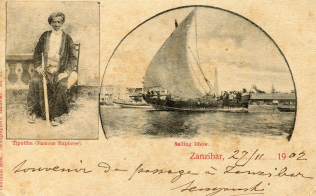 Tiputibu (Famous Explorer).
Sailing Dhow.
Zanzibar, 27/11 1902
Souvenir de passage à Zanzibar